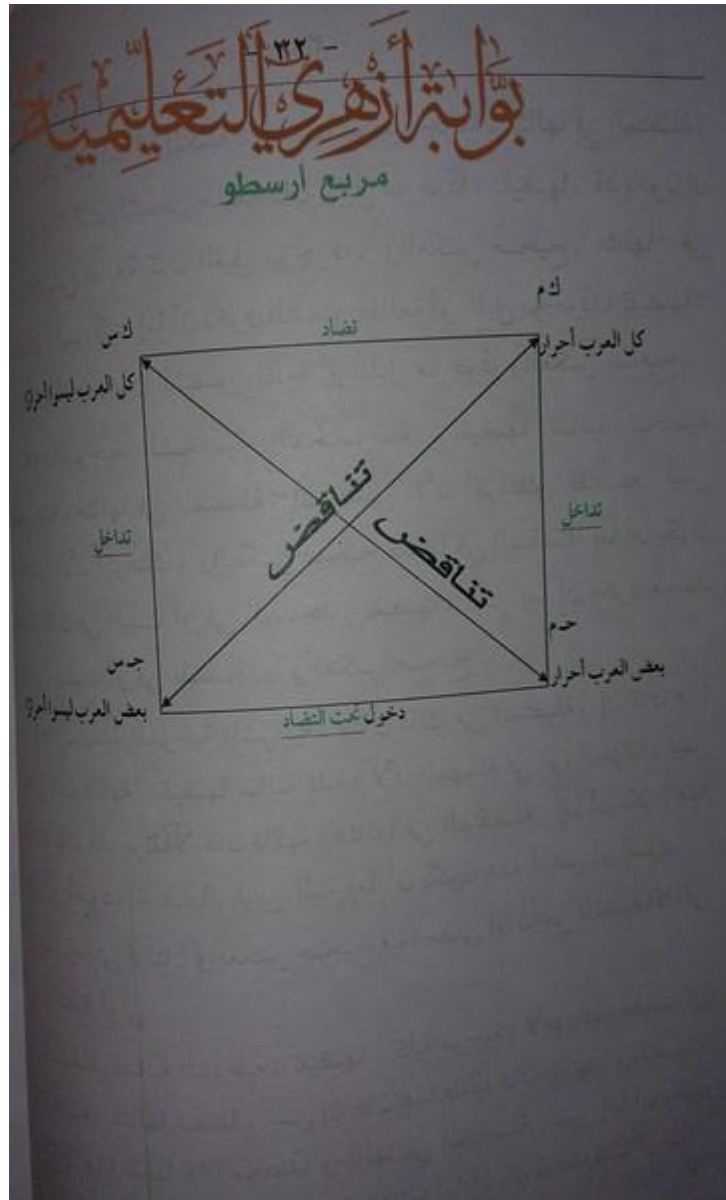 - ٣٢ -
بوابة أزهري التعليمية
مربع أرسطو
ك م
ك س
تضاد
كل العرب أحرار
كل العرب ليسوا أحرارا
تناقض
تناقض
تداخل
تداخل
حـ م
جـ س
بعض العرب أحرار
بعض العرب ليسوا أحرارا
دخول تحت التضاد